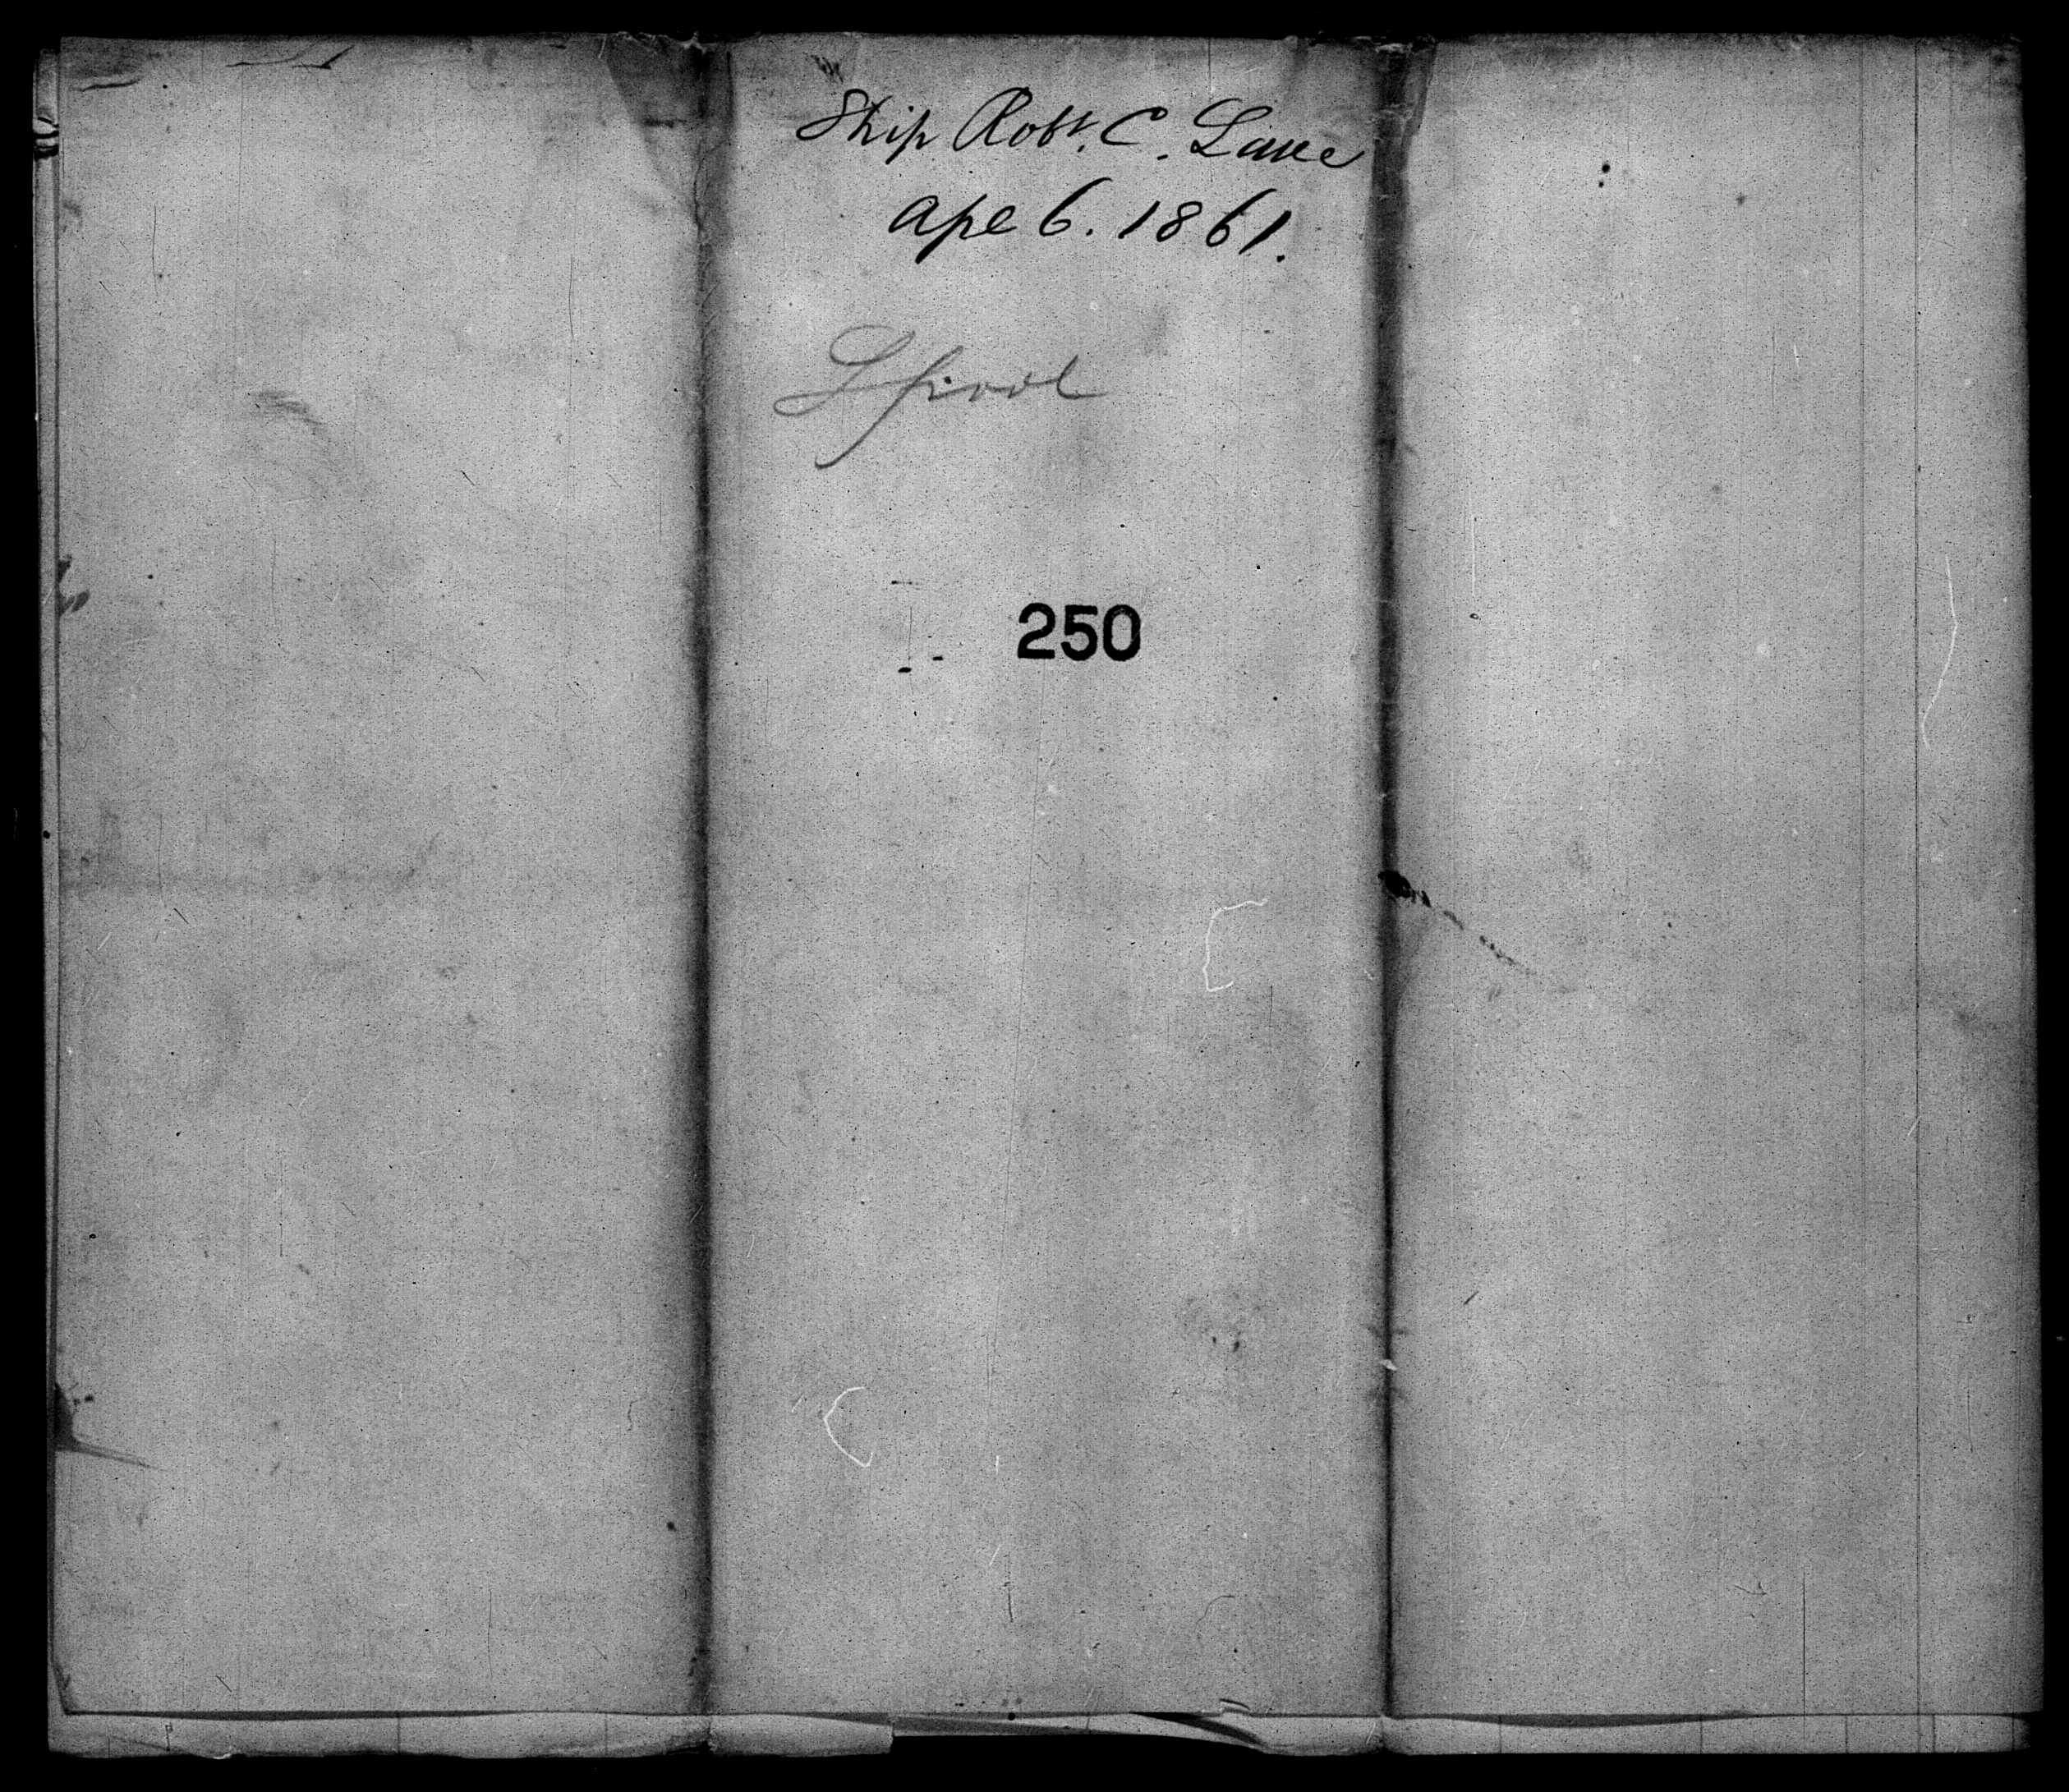 Ship Robt. C. Lane
Apl 6. 1861.
Lpool
250